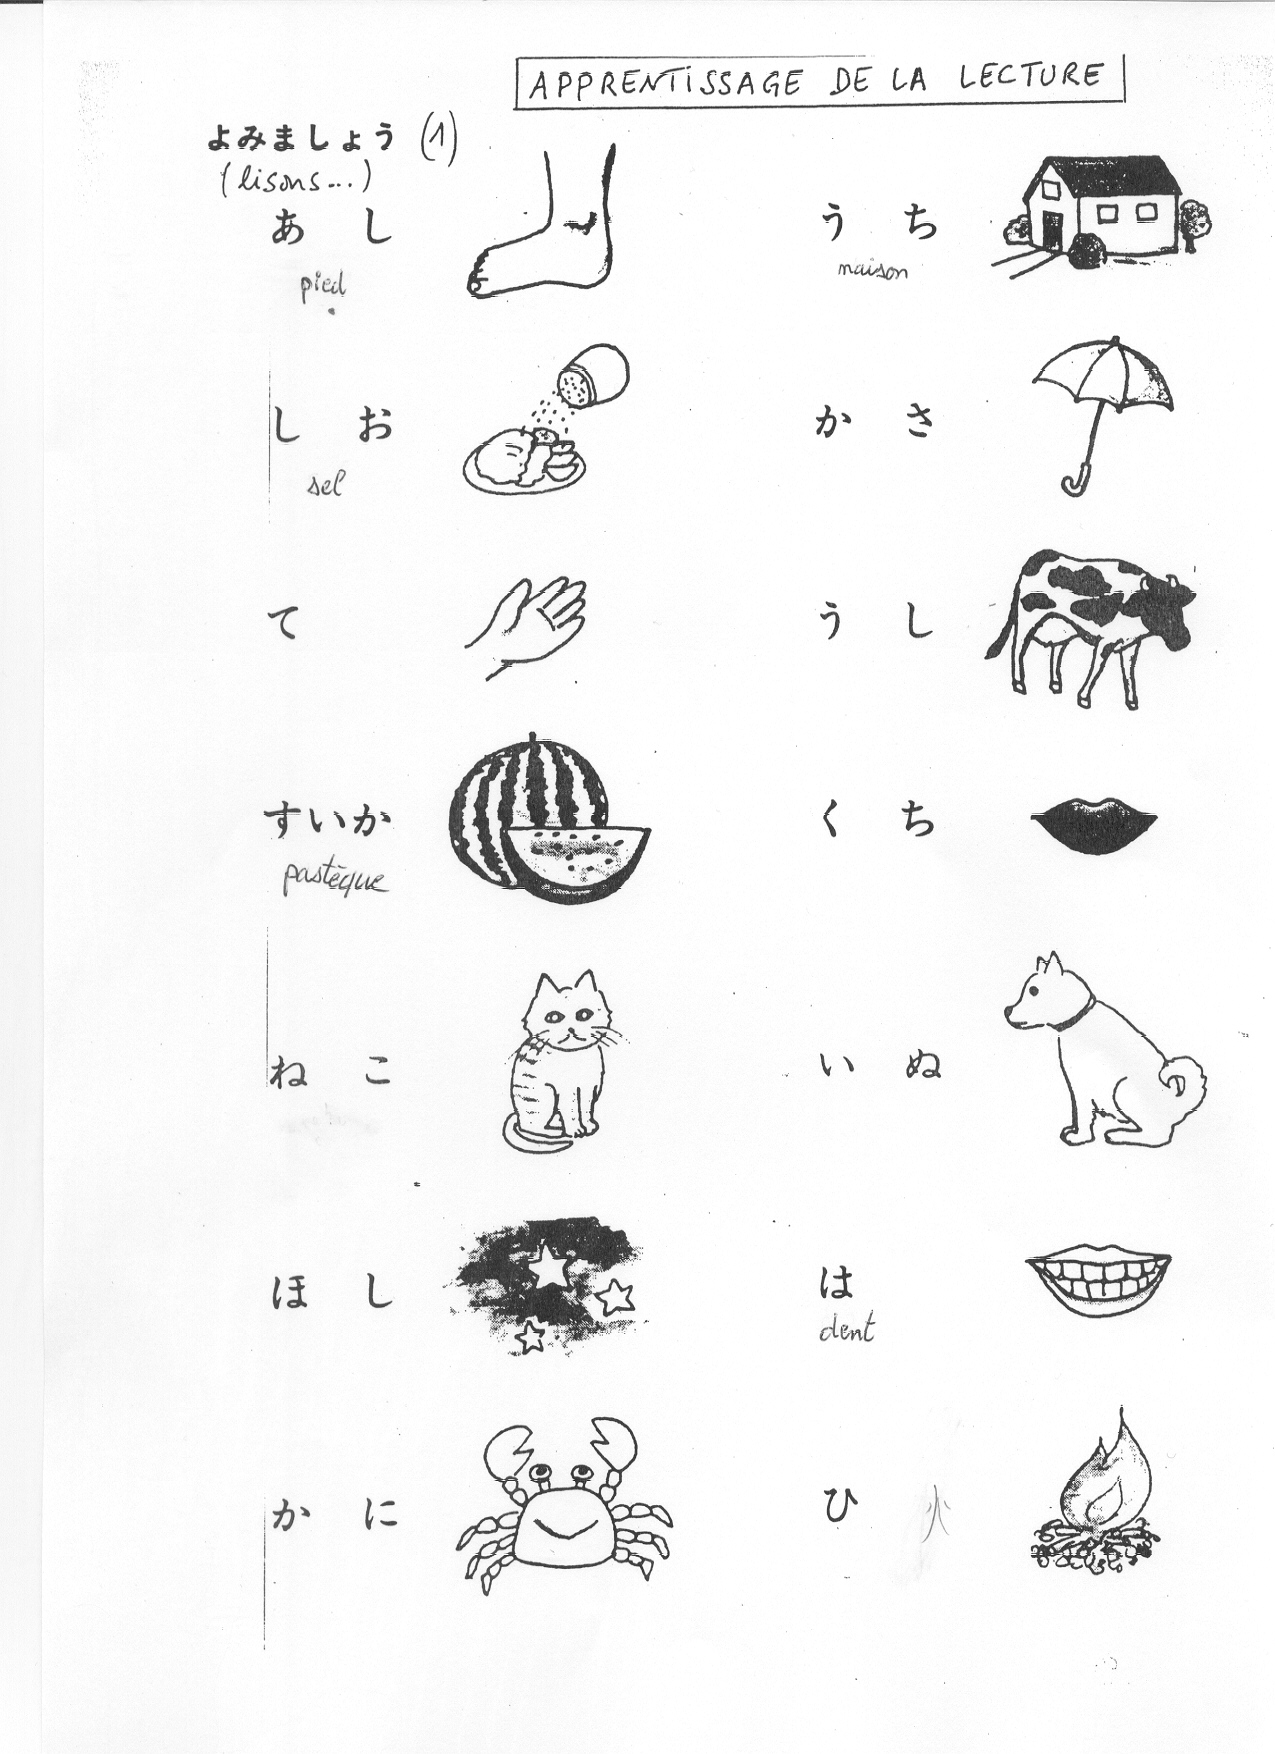 APPRENTISSAGE DE LA LECTURE
よみましょう (1)
(lisons...)
あし
pied
うち
maison
しお
sel
かさ
て
うし
すいか
pastèque
くち
ねこ
いぬ
ほし
は
dent
かに
ひ 火